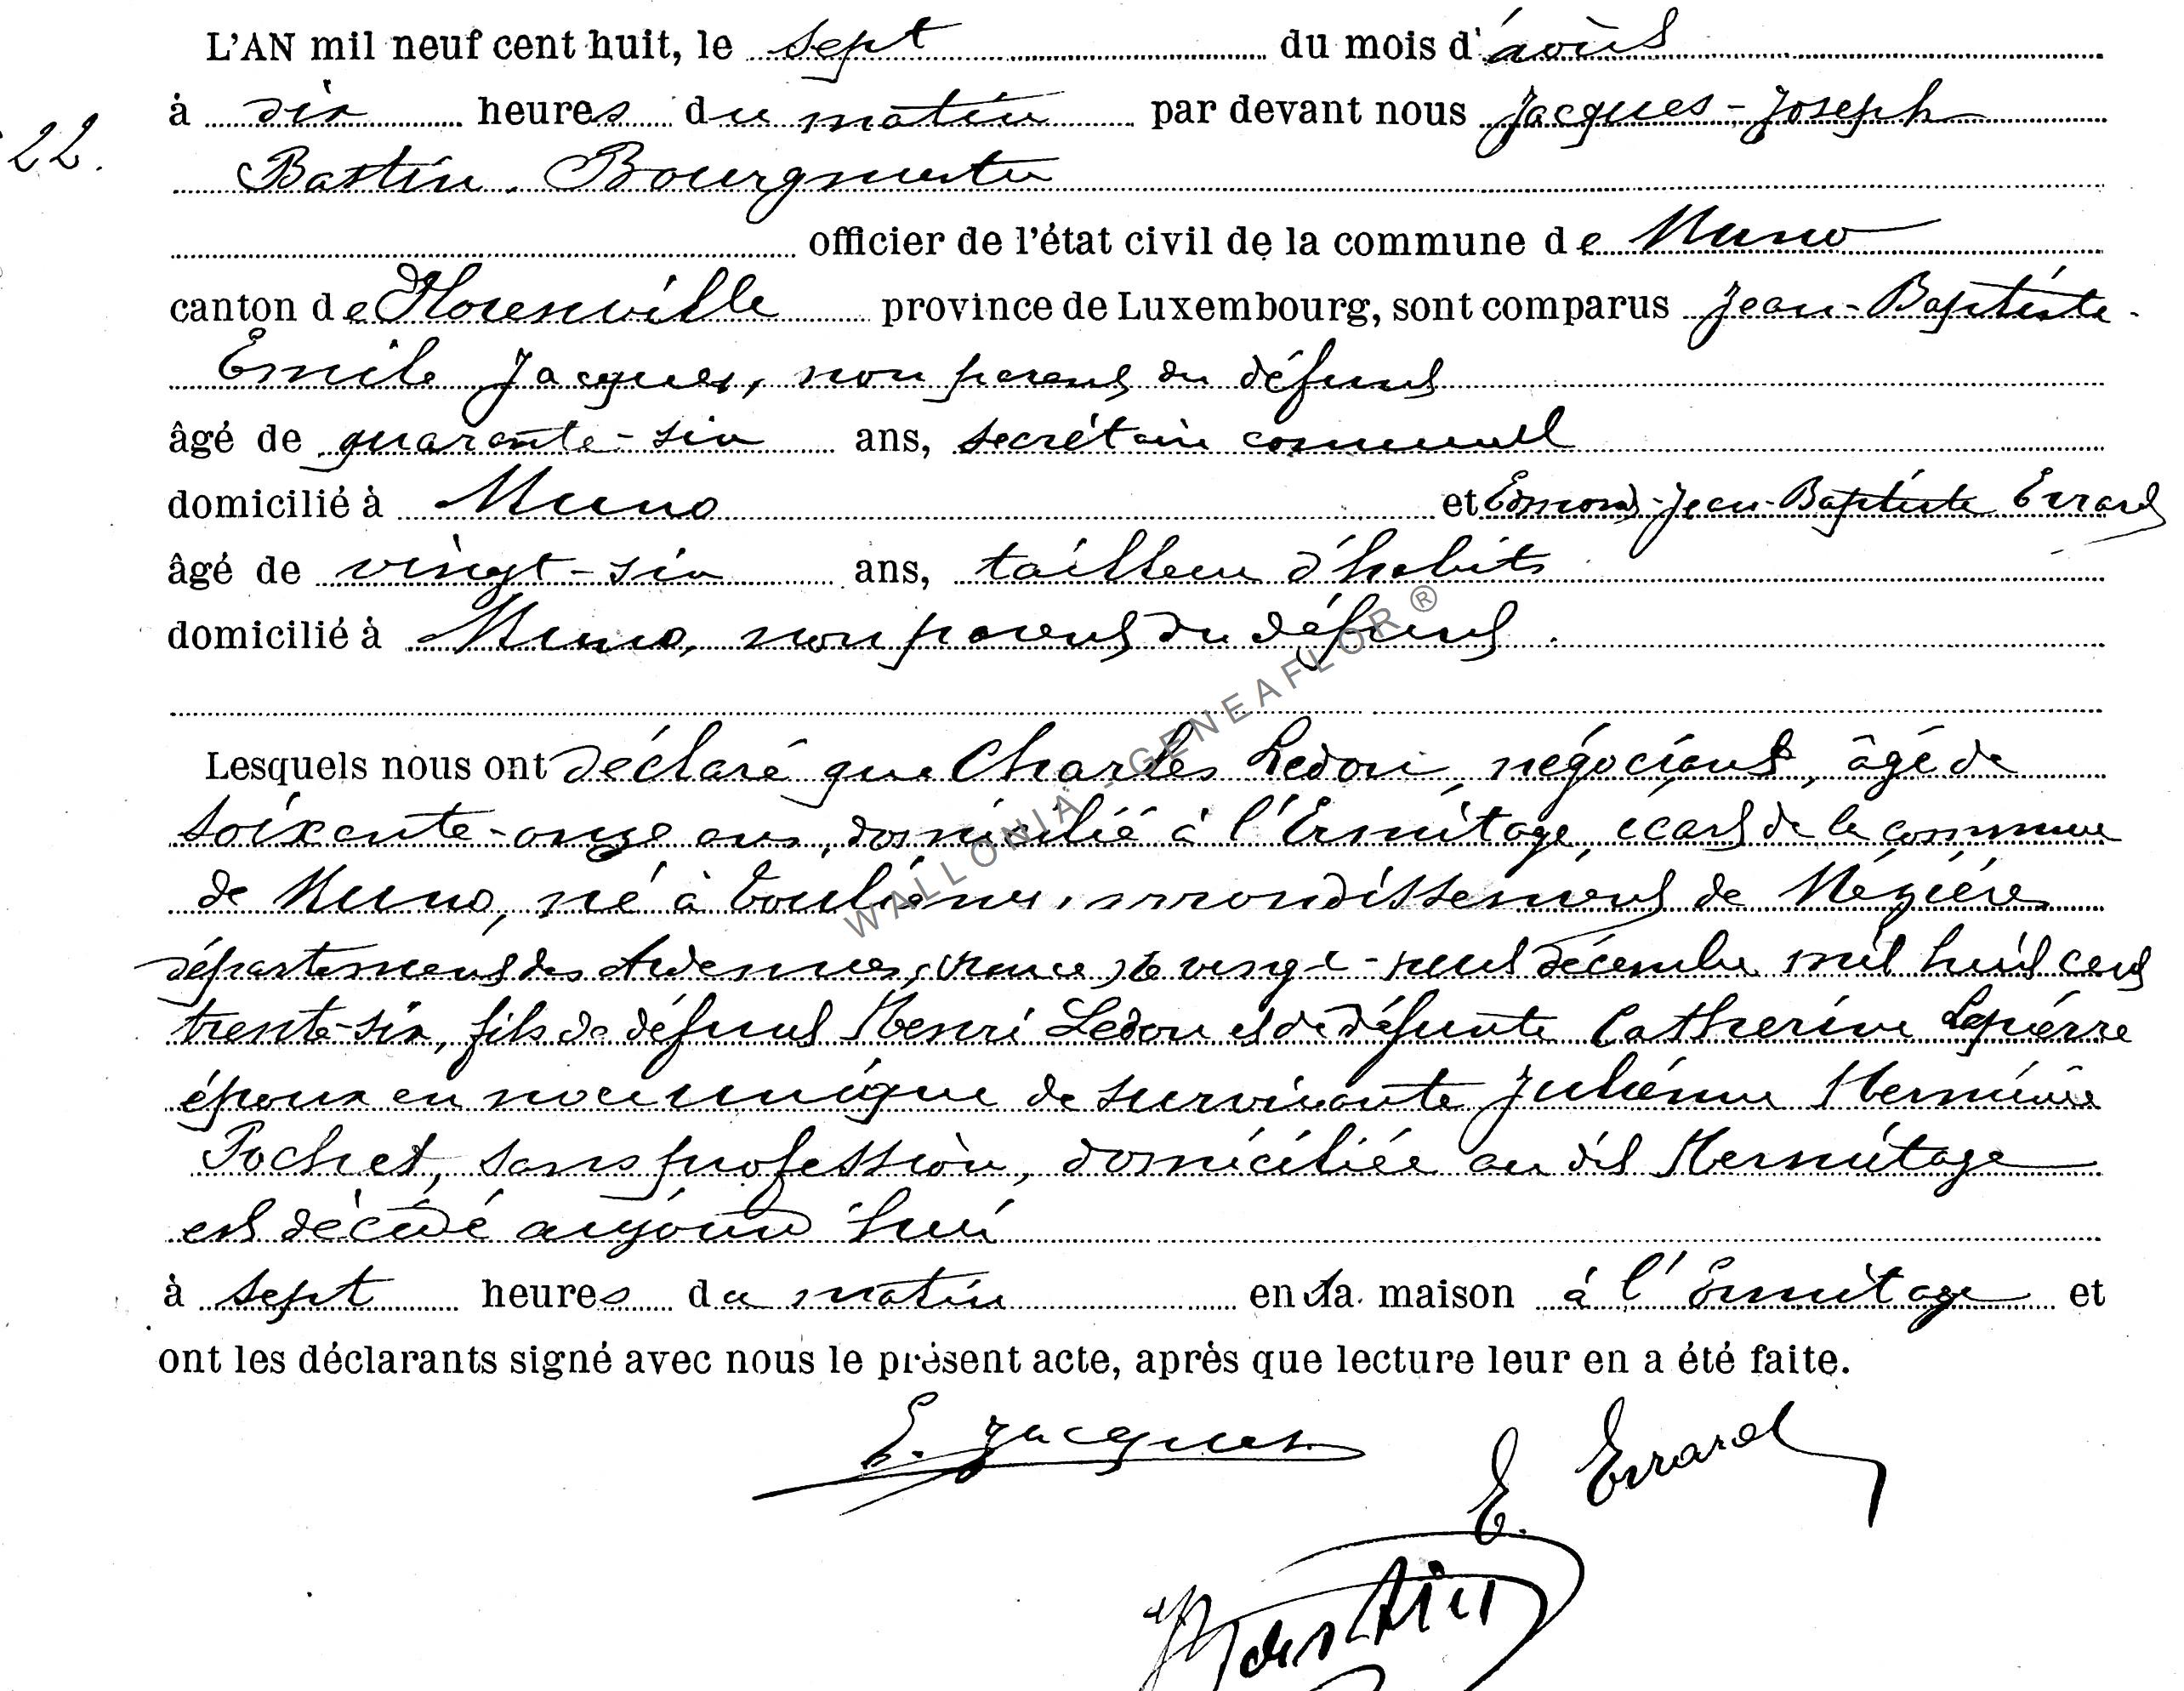 L'AN mil neuf cent huit, le sept du mois d'août
à dix heures du matin par devant nous Jacques-Joseph
22.
Bastin, Bourgmestre
officier de l'état civil de la commune de Muno
canton de Florenville province de Luxembourg, sont comparus Jean-Baptiste-
Emile Jacques, non parent du défunt
âgé de quarante-six ans, secrétaire communal
domicilié à Muno et Edmond-Jean-Baptiste Errard
âgé de vingt-six ans, tailleur d'habits
domicilié à Muno, non parent du défunt.
Lesquels nous ont déclaré que Charles Ledon, négociant, âgé de
soixante-onze ans, domicilié à l'Ermitage, écart de la commune
de Muno, né à arrondissement de Mézières
département des Ardennes, France, le vingt-neuf décembre mil huit cent
trente-six, fils de défunt Henri Ledon et de défunte Catherine Lapierre
époux en noce unique de survivante Julienne Herminie
Pochet, sans profession, domiciliée au dit Hermitage
est décédé aujourd'hui
à sept heures du matin en sa maison à l'Ermitage et
ont les déclarants signé avec nous le présent acte, après que lecture leur en a été faite.
E. Jacques
E. Errard
Bastin
WALLONIA - GENEAFLOR ®